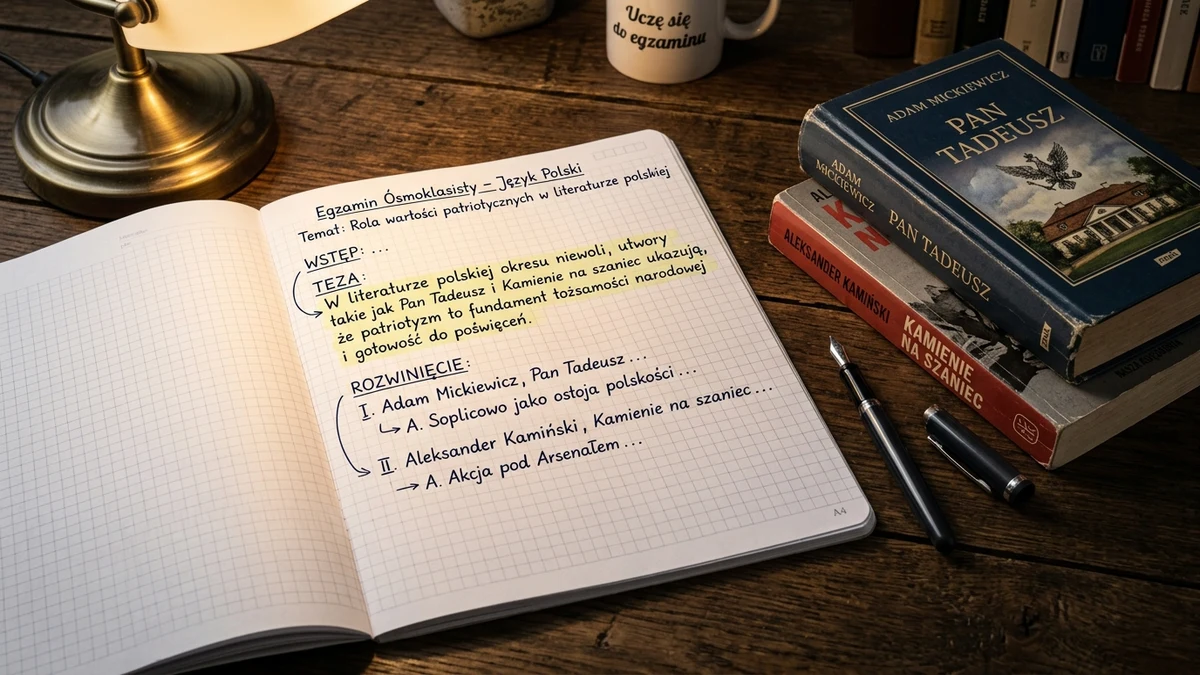 Uczę się
do egzaminu
Egzamin Ósmoklasisty – Język Polski
Temat: Rola wartości patriotycznych w literaturze polskiej
WSTĘP: ...
TEZA:
W literaturze polskiej okresu niewoli, utwory
takie jak Pan Tadeusz i Kamienie na szaniec ukazują,
że patriotyzm to fundament tożsamości narodowej
i gotowość do poświęceń.
ROZWINIĘCIE:
I. Adam Mickiewicz, Pan Tadeusz ...
A. Soplicowo jako ostoja polskości ...
II. Aleksander Kamiński, Kamienie na szaniec ...
→ A. Akcja pod Arsenałem ...
A4
ADAM MICKIEWICZ
PAN
TADEUSZ
ADAM
MICKIEWICZ
PAN TADEUSZ
ALEKSANDER KAMIŃSKI
KAMIENIE
NA SZANIEC